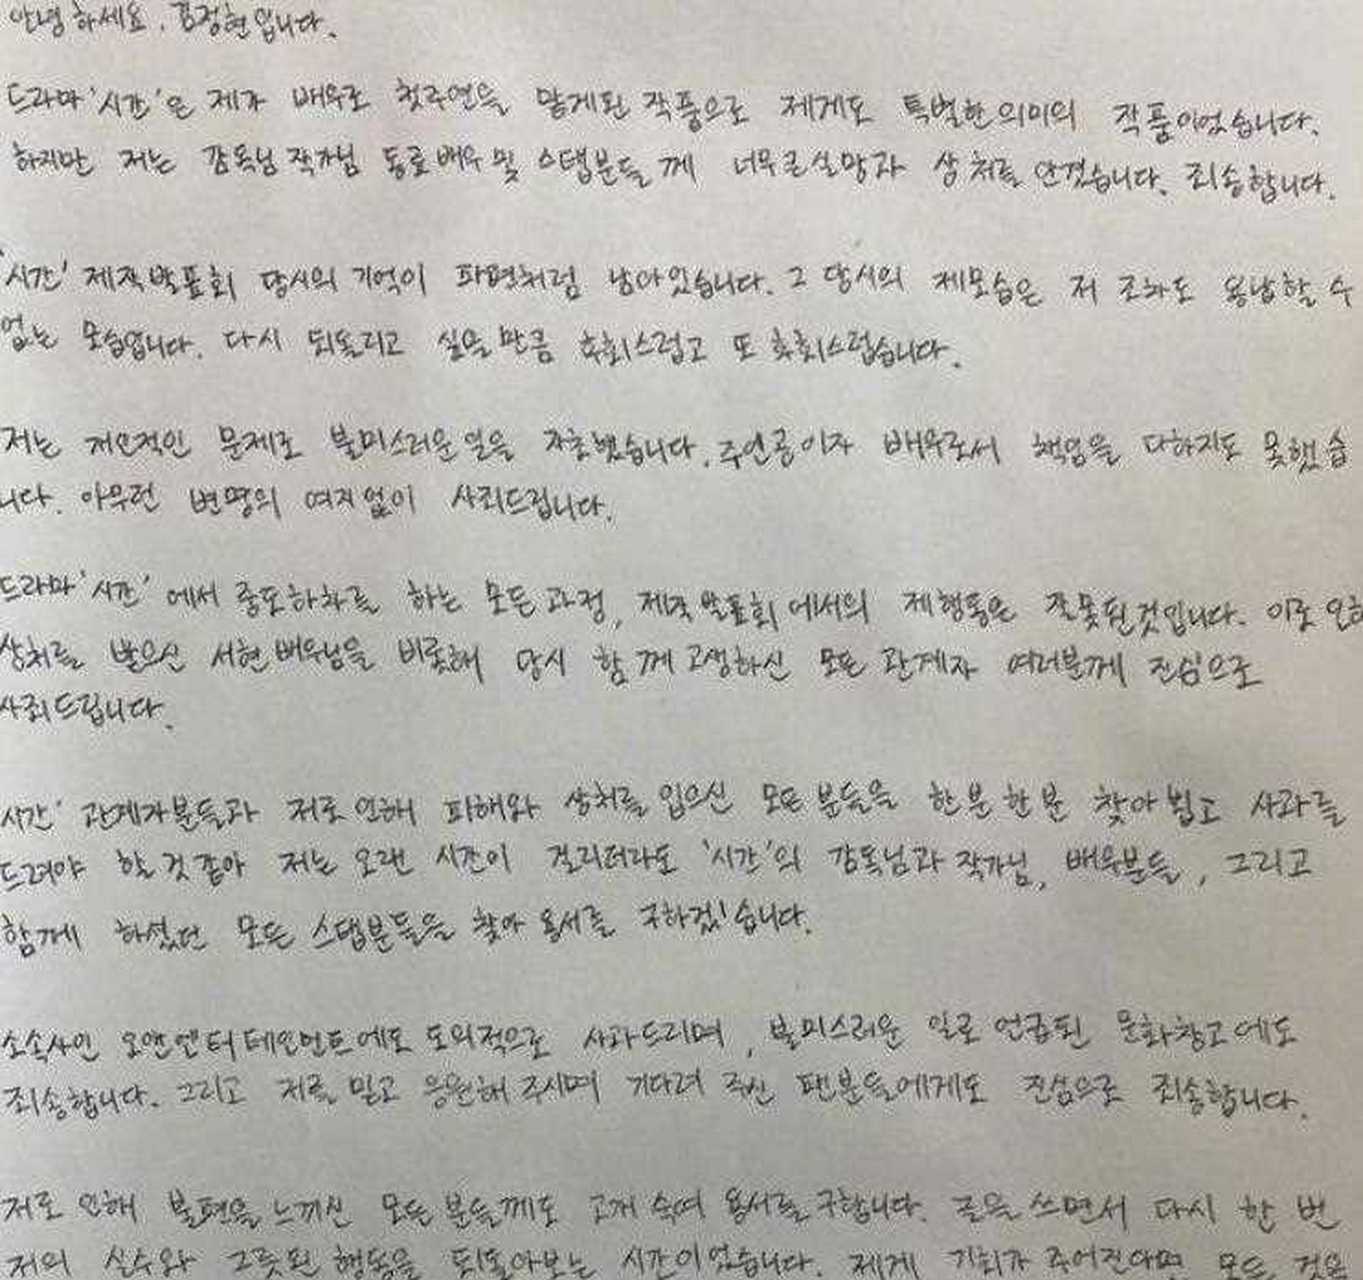 안녕하세요. 김정현입니다.
드라마 '시간'은 제가 배우로 첫주연을 맡게된 작품으로 제게도 특별한 의미의 작품이었습니다.
하지만 저는 감독님 작가님 동료배우 및 스탭분들께 너무 큰 실망과 상처를 안겼습니다. 죄송합니다.
'시간' 제작발표회 당시의 기억이 파편처럼 남아있습니다. 그 당시의 제모습은 저 조차도 용납할 수
없는 모습입니다. 다시 되돌리고 싶을 만큼 후회스럽고 또 후회스럽습니다.
저는 개인적인 문제로 불미스러운 일을 자초했습니다. 주인공이자 배우로서 책임을 다하지도 못했습
니다. 아무런 변명의 여지없이 사죄드립니다.
드라마 '시간' 에서 중도하차를 하는 모든 과정, 제작발표회에서의 제행동은 잘못된것입니다. 이로 인해
상처를 받으신 서현 배우님을 비롯해 당시 함께 고생하신 모든 관계자 여러분께 진심으로
사죄드립니다.
시간' 관계자분들과 저로 인해 피해와 상처를 입으신 모든 분들을 한분 한분 찾아 뵙고 사과를
드려야 할 것 같아 저는 오랜 시간이 걸리더라도 '시간'의 감독님과 작가님, 배우분들, 그리고
함께 하셨던 모든 스탭분들을 찾아 용서를 구하겠습니다.
소속사인 오앤엔터테인먼트에도 도의적으로 사과드리며, 불미스러운 일로 언급된 문화창고에도
죄송합니다. 그리고 저를 믿고 응원해 주시며 기다려 주신 팬분들에게도 진심으로 죄송합니다.
저로 인해 불편을 느끼신 모든 분들께도 고개 숙여 용서를 구합니다. 글을 쓰면서 다시 한 번
저의 실수와 그릇된 행동을 되돌아보는 시간이었습니다. 제게 기회가 주어진다면 모든 것을